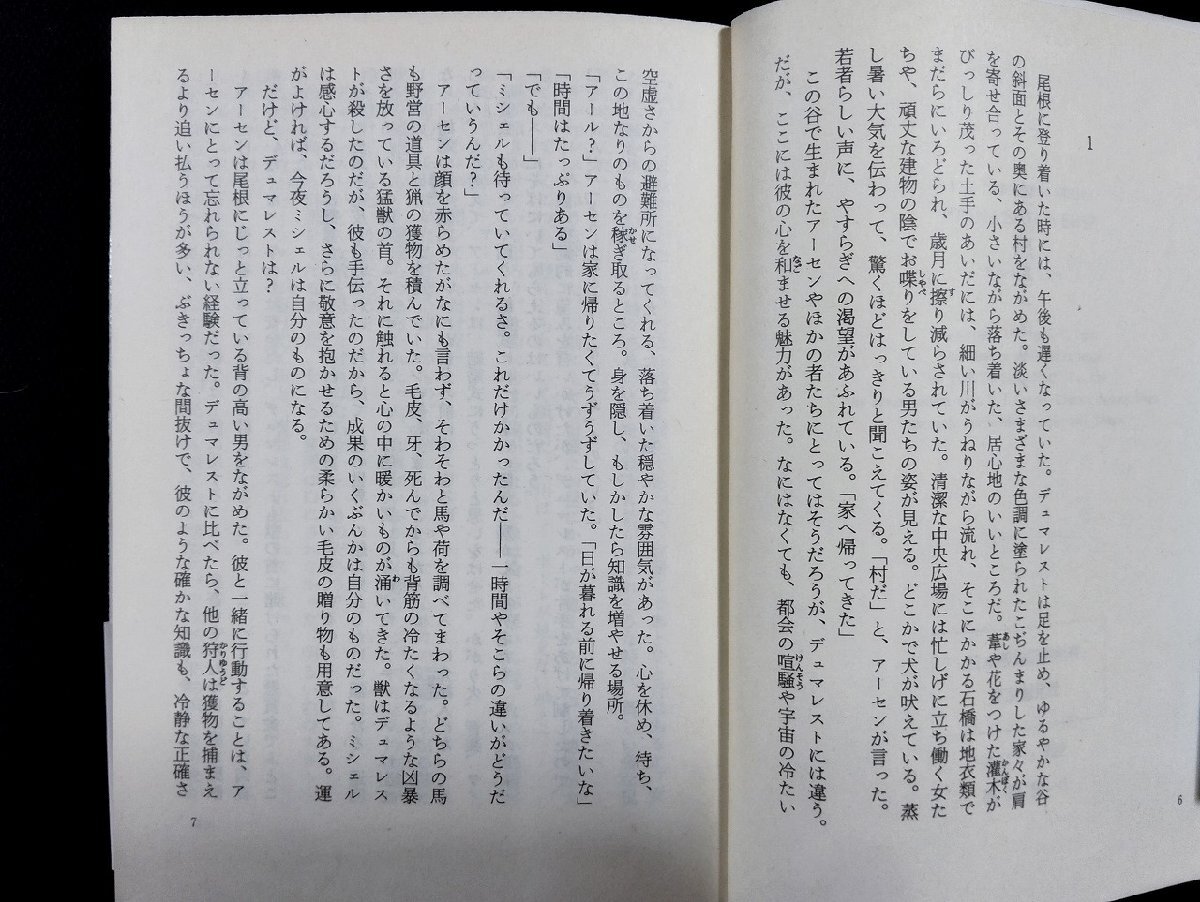 1
尾根に登り着いた時には、午後も遅くなっていた。デュマレストは足を止め、ゆるやかな谷
の斜面とその奥にある村をながめた。淡いさまざまな色調に塗られたこぢんまりした家々が肩
を寄せ合っている、小さいながら落ち着いた、居心地のいいところだ。葦や花をつけた灌木が
びっしり茂った土手のあいだには、細い川がうねりながら流れ、そこにかかる石橋は地衣類で
まだらにいろどられ、歳月に擦り減らされていた。清潔な中央広場には忙しげに立ち働く女た
ちや、頑丈な建物の陰でお喋りをしている男たちの姿が見える。どこかで犬が吠えている。蒸
し暑い大気を伝わって、驚くほどはっきりと聞こえてくる。「村だ」と、アーセンが言った。
若者らしい声に、やすらぎへの渇望があふれている。「家へ帰ってきた」
この谷で生まれたアーセンやほかの者たちにとってはそうだろうが、デュマレストには違う。
だが、ここには彼の心を和ませる魅力があった。なにはなくても、都会の喧騒や宇宙の冷たい
6
空虚さからの避難所になってくれる、落ち着いた穏やかな雰囲気があった。心を休め、待ち、
この地なりのものを稼ぎ取るところ。身を隠し、もしかしたら知識を増やせる場所。
「アール？」アーセンは家に帰りたくてうずうずしていた。「日が暮れる前に帰り着きたいな」
「時間はたっぷりある」
「でも――」
「ミシェルも待っていてくれるさ。これだけかかったんだ――一時間やそこらの違いがどうだ
っていうんだ？」
アーセンは顔を赤らめたがなにも言わず、そわそわと馬や荷を調べてまわった。どちらの馬
も野営の道具と猟の獲物を積んでいた。毛皮、牙、死んでからも背筋の冷たくなるような凶暴
さを放っている猛獣の首。それに触れると心の中に暖かいものが涌いてきた。獣はデュマレス
トが殺したのだが、彼も手伝ったのだから、成果のいくぶんかは自分のものだった。ミシェル
は感心するだろうし、さらに敬意を抱かせるための柔らかい毛皮の贈り物も用意してある。運
がよければ、今夜ミシェルは自分のものになる。
だけど、デュマレストは？
アーセンは尾根にじっと立っている背の高い男をながめた。彼と一緒に行動することは、ア
ーセンにとって忘れられない経験だった。デュマレストに比べたら、他の狩人は獲物を捕まえ
るより追い払うほうが多い、ぶきっちょな間抜けで、彼のような確かな知識も、冷静な正確さ
7